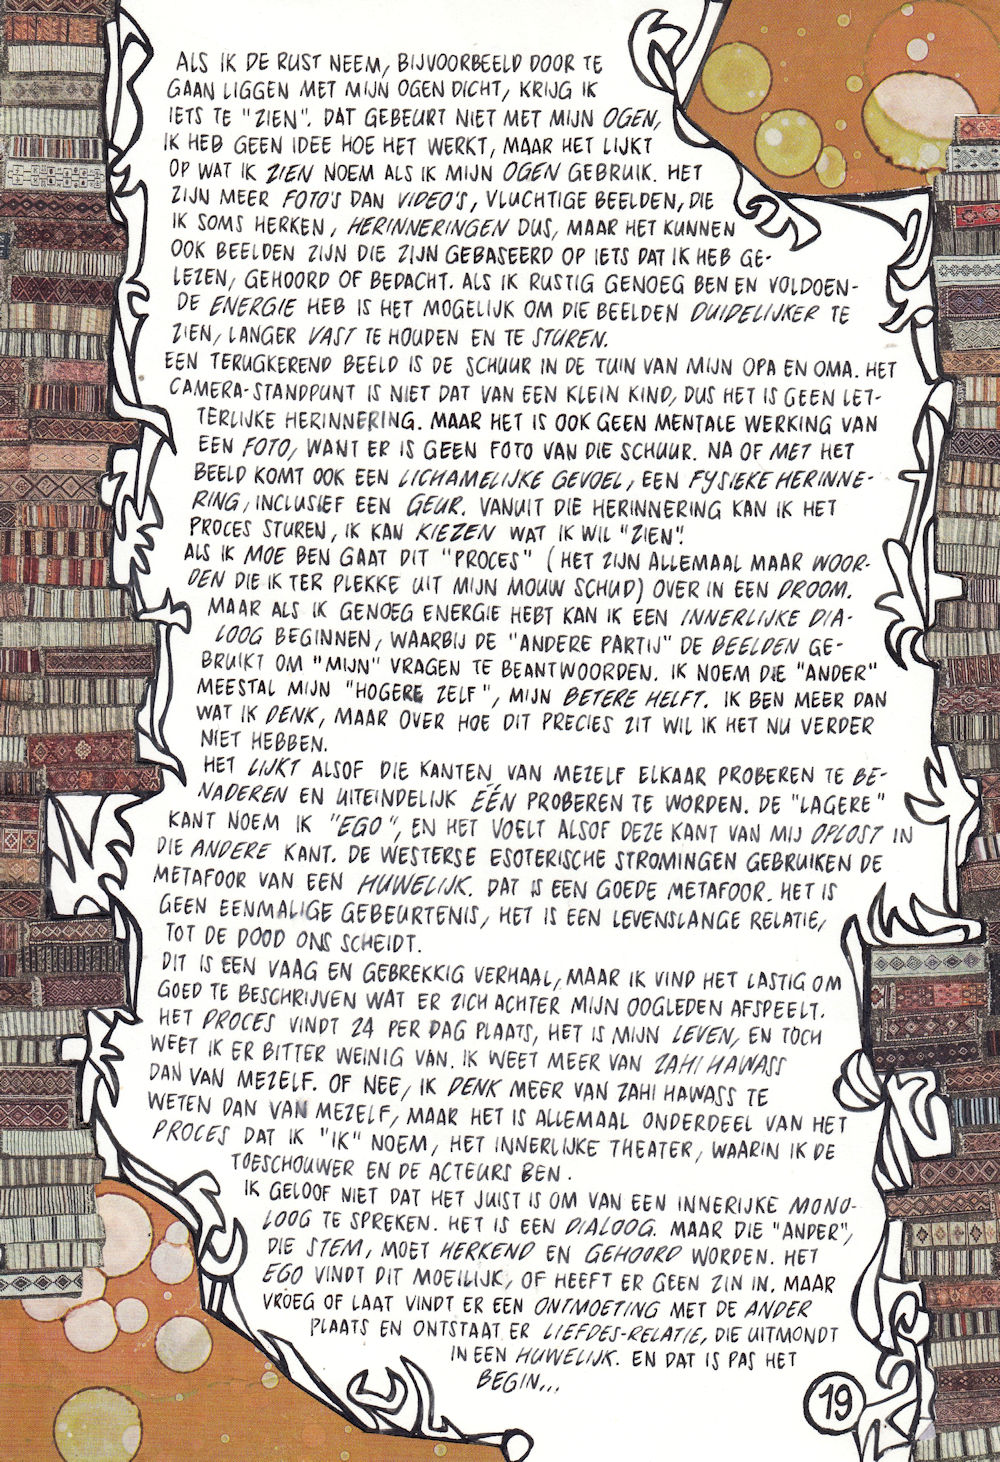 ALS IK DE RUST NEEM, BIJVOORBEELD DOOR TE
GAAN LIGGEN MET MIJN OGEN DICHT, KRIJG IK
IETS TE "ZIEN". DAT GEBEURT NIET MET MIJN OGEN,
IK HEB GEEN IDEE HOE HET WERKT, MAAR HET LIJKT
OP WAT IK ZIEN NOEM ALS IK MIJN OGEN GEBRUIK. HET
ZIJN MEER FOTO'S DAN VIDEO'S, VLUCHTIGE BEELDEN, DIE
IK SOMS HERKEN, HERINNERINGEN DUS, MAAR HET KUNNEN
OOK BEELDEN ZIJN DIE ZIJN GEBASEERD OP IETS DAT IK HEB GE-
LEZEN, GEHOORD OF BEDACHT. ALS IK RUSTIG GENOEG BEN EN VOLDOEN-
DE ENERGIE HEB IS HET MOGELIJK OM DIE BEELDEN DUIDELIJKER TE
ZIEN, LANGER VAST TE HOUDEN EN TE STUREN.
EEN TERUGKEREND BEELD IS DE SCHUUR IN DE TUIN VAN MIJN OPA EN OMA. HET
CAMERA-STANDPUNT IS NIET DAT VAN EEN KLEIN KIND, DUS HET IS GEEN LET-
TERLIJKE HERINNERING. MAAR HET IS OOK GEEN MENTALE WERKING VAN
EEN FOTO, WANT ER IS GEEN FOTO VAN DIE SCHUUR. NA OF MET HET
BEELD KOMT OOK EEN LICHAMELIJKE GEVOEL, EEN FYSIEKE HERINNE-
RING, INCLUSIEF EEN GEUR. VANUIT DIE HERINNERING KAN IK HET
PROCES STUREN, IK KAN KIEZEN WAT IK WIL "ZIEN".
ALS IK MOE BEN GAAT DIT "PROCES" (HET ZIJN ALLEMAAL MAAR WOOR-
DEN DIE IK TER PLEKKE UIT MIJN MOUW SCHUD) OVER IN EEN DROOM.
MAAR ALS IK GENOEG ENERGIE HEBT KAN IK EEN INNERLIJKE DIA-
LOOG BEGINNEN, WAARBIJ DE "ANDERE PARTIJ" DE BEELDEN GE-
BRUIKT OM "MIJN" VRAGEN TE BEANTWOORDEN. IK NOEM DIE "ANDER"
MEESTAL MIJN "HOGERE ZELF", MIJN BETERE HELFT. IK BEN MEER DAN
WAT IK DENK, MAAR OVER HOE DIT PRECIES ZIT WIL IK HET NU VERDER
NIET HEBBEN.
HET LIJKT ALSOF DIE KANTEN VAN MEZELF ELKAAR PROBEREN TE BE-
NADEREN EN UITEINDELIJK ÉÉN PROBEREN TE WORDEN. DE "LAGERE"
KANT NOEM IK "EGO", EN HET VOELT ALSOF DEZE KANT VAN MIJ OPLOST IN
DIE ANDERE KANT. DE WESTERSE ESOTERISCHE STROMINGEN GEBRUIKEN DE
METAFOOR VAN EEN HUWELIJK. DAT IS EEN GOEDE METAFOOR. HET IS
GEEN EENMALIGE GEBEURTENIS, HET IS EEN LEVENSLANGE RELATIE,
TOT DE DOOD ONS SCHEIDT.
DIT IS EEN VAAG EN GEBREKKIG VERHAAL, MAAR IK VIND HET LASTIG OM
GOED TE BESCHRIJVEN WAT ER ZICH ACHTER MIJN OOGLEDEN AFSPEELT.
HET PROCES VINDT 24 PER DAG PLAATS, HET IS MIJN LEVEN, EN TOCH
WEET IK ER BITTER WEINIG VAN. IK WEET MEER VAN ZAHI HAWASS
DAN VAN MEZELF. OF NEE, IK DENK MEER VAN ZAHI HAWASS TE
WETEN DAN VAN MEZELF, MAAR HET IS ALLEMAAL ONDERDEEL VAN HET
PROCES DAT IK "IK" NOEM, HET INNERLIJKE THEATER, WAARIN IK DE
TOESCHOUWER EN DE ACTEURS BEN.
IK GELOOF NIET DAT HET JUIST IS OM VAN EEN INNERIJKE MONO-
LOOG TE SPREKEN. HET IS EEN DIALOOG. MAAR DIE "ANDER",
DIE STEM, MOET HERKEND EN GEHOORD WORDEN. HET
EGO VINDT DIT MOEILIJK, OF HEEFT ER GEEN ZIN IN. MAAR
VROEG OF LAAT VINDT ER EEN ONTMOETING MET DE ANDER
PLAATS EN ONTSTAAT ER LIEFDES-RELATIE, DIE UITMONDT
IN EEN HUWELIJK. EN DAT IS PAS HET
BEGIN...
19